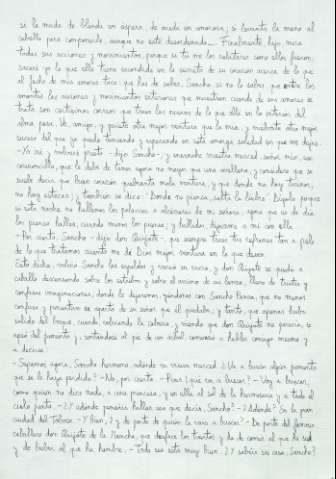 si la muda de blanda en áspera, de aceda en amorosa; si levanta la mano al
cabello para componerle, aunque no esté desordenado... Finalmente, hijo, mira
todas sus acciones y movimientos, porque si tú me los relatares como ellos fueron,
sacaré yo lo que ella tiene escondido en lo secreto de su corazón acerca de lo que
al fecho de mis amores toca; que has de saber, Sancho, si no lo sabes, que entre los
amantes las acciones y movimientos exteriores que muestran cuando de sus amores se
trata son certísimos correos que traen las nuevas de lo que allá en lo interior del
alma pasa. Ve, amigo, y guíete otra mejor ventura que la mía, y vuélvate otro mejor
suceso del que yo quedo temiendo y esperando en esta amarga soledad en que me dejas.
-Yo iré y volveré presto -dijo Sancho-; y ensanche vuestra merced, señor mío, ese
corazoncillo, que le debe de tener agora no mayor que una avellana, y considere que se
suele decir que buen corazón quebranta mala ventura, y que donde no hay tocinos,
no hay estacas; y también se dice: "Donde no piensa, salta la liebre". Dígolo porque
si esta noche no hallamos los palacios o alcázares de mi señora, agora que es de día
los pienso hallar, cuando menos los piense; y hallados, déjenme a mí con ella.
-Por cierto, Sancho -dijo don Quijote-, que siempre traes tus refranes tan a pelo
de lo que tratamos cuanto me dé Dios mejor ventura en lo que deseo.
Esto dicho, volvió Sancho las espaldas y vareó su rucio, y don Quijote se quedó a
caballo descansando sobre los estribos y sobre el arrimo de su lanza, lleno de tristes y
confusas imaginaciones, donde le dejaremos, yéndonos con Sancho Panza, que no menos
confuso y pensativo se apartó de su señor que él quedaba; y tanto, que apenas hubo
salido del bosque, cuando, volviendo la cabeza, y viendo que don Quijote no parecía, se
apeó del jumento y, sentándose al pie de un árbol, comenzó a hablar consigo mesmo y
a decirse:
-Sepamos agora, Sancho hermano, adónde va vuesa merced. ¿Va a buscar algún jumento
que se le haya perdido? -No, por cierto. -Pues ¿qué va a buscar? -Voy a buscar,
como quien no dice nada, a una princesa, y en ella al sol de la hermosura y a todo el
cielo junto. -¿Y adónde pensáis hallar eso que decís, Sancho? -¿Adónde? En la gran
ciudad del Toboso. -Y bien, ¿y de parte de quién la vais a buscar? -De parte del famoso
caballero don Quijote de la Mancha, que desface los tuertos y da de comer al que ha sed
y de beber al que ha hambre. -Todo eso está muy bien. ¿Y sabéis su casa, Sancho?